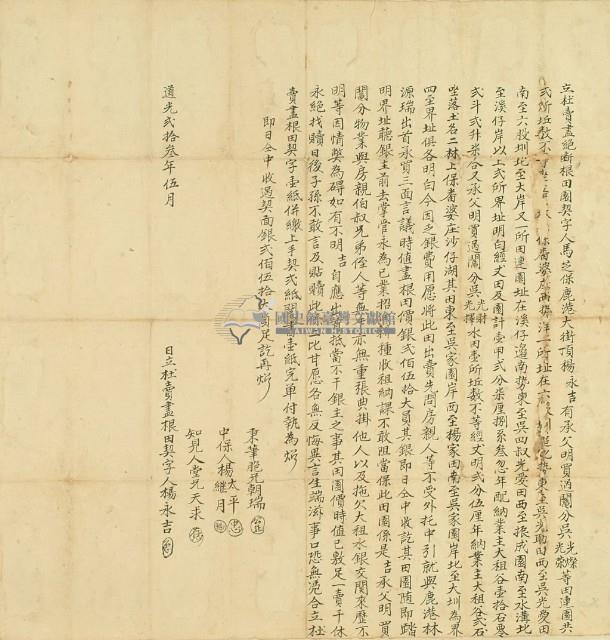 立杜賣盡絕斷根田園契字人馬芝保鹿港大街頂楊永吉有承父明買過鬮分吳光燦光崇等田連園共
式所坵数不等 保番婆庄西勢洋一所址在 東至吳光 田西至吳光愛田
南至六股圳北至大岸又一所田連園址在溪仔邊南勢東至吳四叔光愛田西至振成園南至水溝北
至溪仔岸以上式所界址明白經丈田及園計壹甲式分柒厘捌系叁忽年配納業主大租谷壹拾石零
式斗式升柒合又承父明買過鬮分吳光謝光擇水田壹所坵数不等經丈明式分伍厘年納業主大租谷式石
坐落土名二林上保番婆庄沙仔湖其田東至吳家園岸西至楊家田南至吳家園岸北至大圳為界
四至界址俱各明白今因乏銀費用愿將此田出賣先問房親人等不受外托中引就與鹿港林
源瑞出首承買三面言議時值盡根田價銀式佰伍拾大員其銀即日仝中收訖其田園隨即踏
明界址聽銀主前去掌管永為己業招 耕種收租納課不敢阻當保此田園係是吉承父明買
鬮分物業與房親伯叔兄弟侄人等無 亦無重張典掛他人以及拖欠大租水銀交關來歷不
明等因情獘為碍如有不明吉自應出 抵當不干銀主之事其田園價時值已敷足一賣千休
永絕找贖日後子孫不敢言及貼贖此 比甘愿各無反悔異言生端滋事口恐無憑合立杜
賣盡根田契字壹紙併繳上手契式紙鬮 壹紙完單付執為炤
即日仝中收過契面銀式佰伍拾大員足訖再炤
秉筆胞兄朝瑞
中保人楊太平繼月
知見人堂兄天求
道光式拾叁年伍月 日立杜賣盡根田契字人楊永吉
國史館臺灣文獻館
TAIWAN HISTORICA